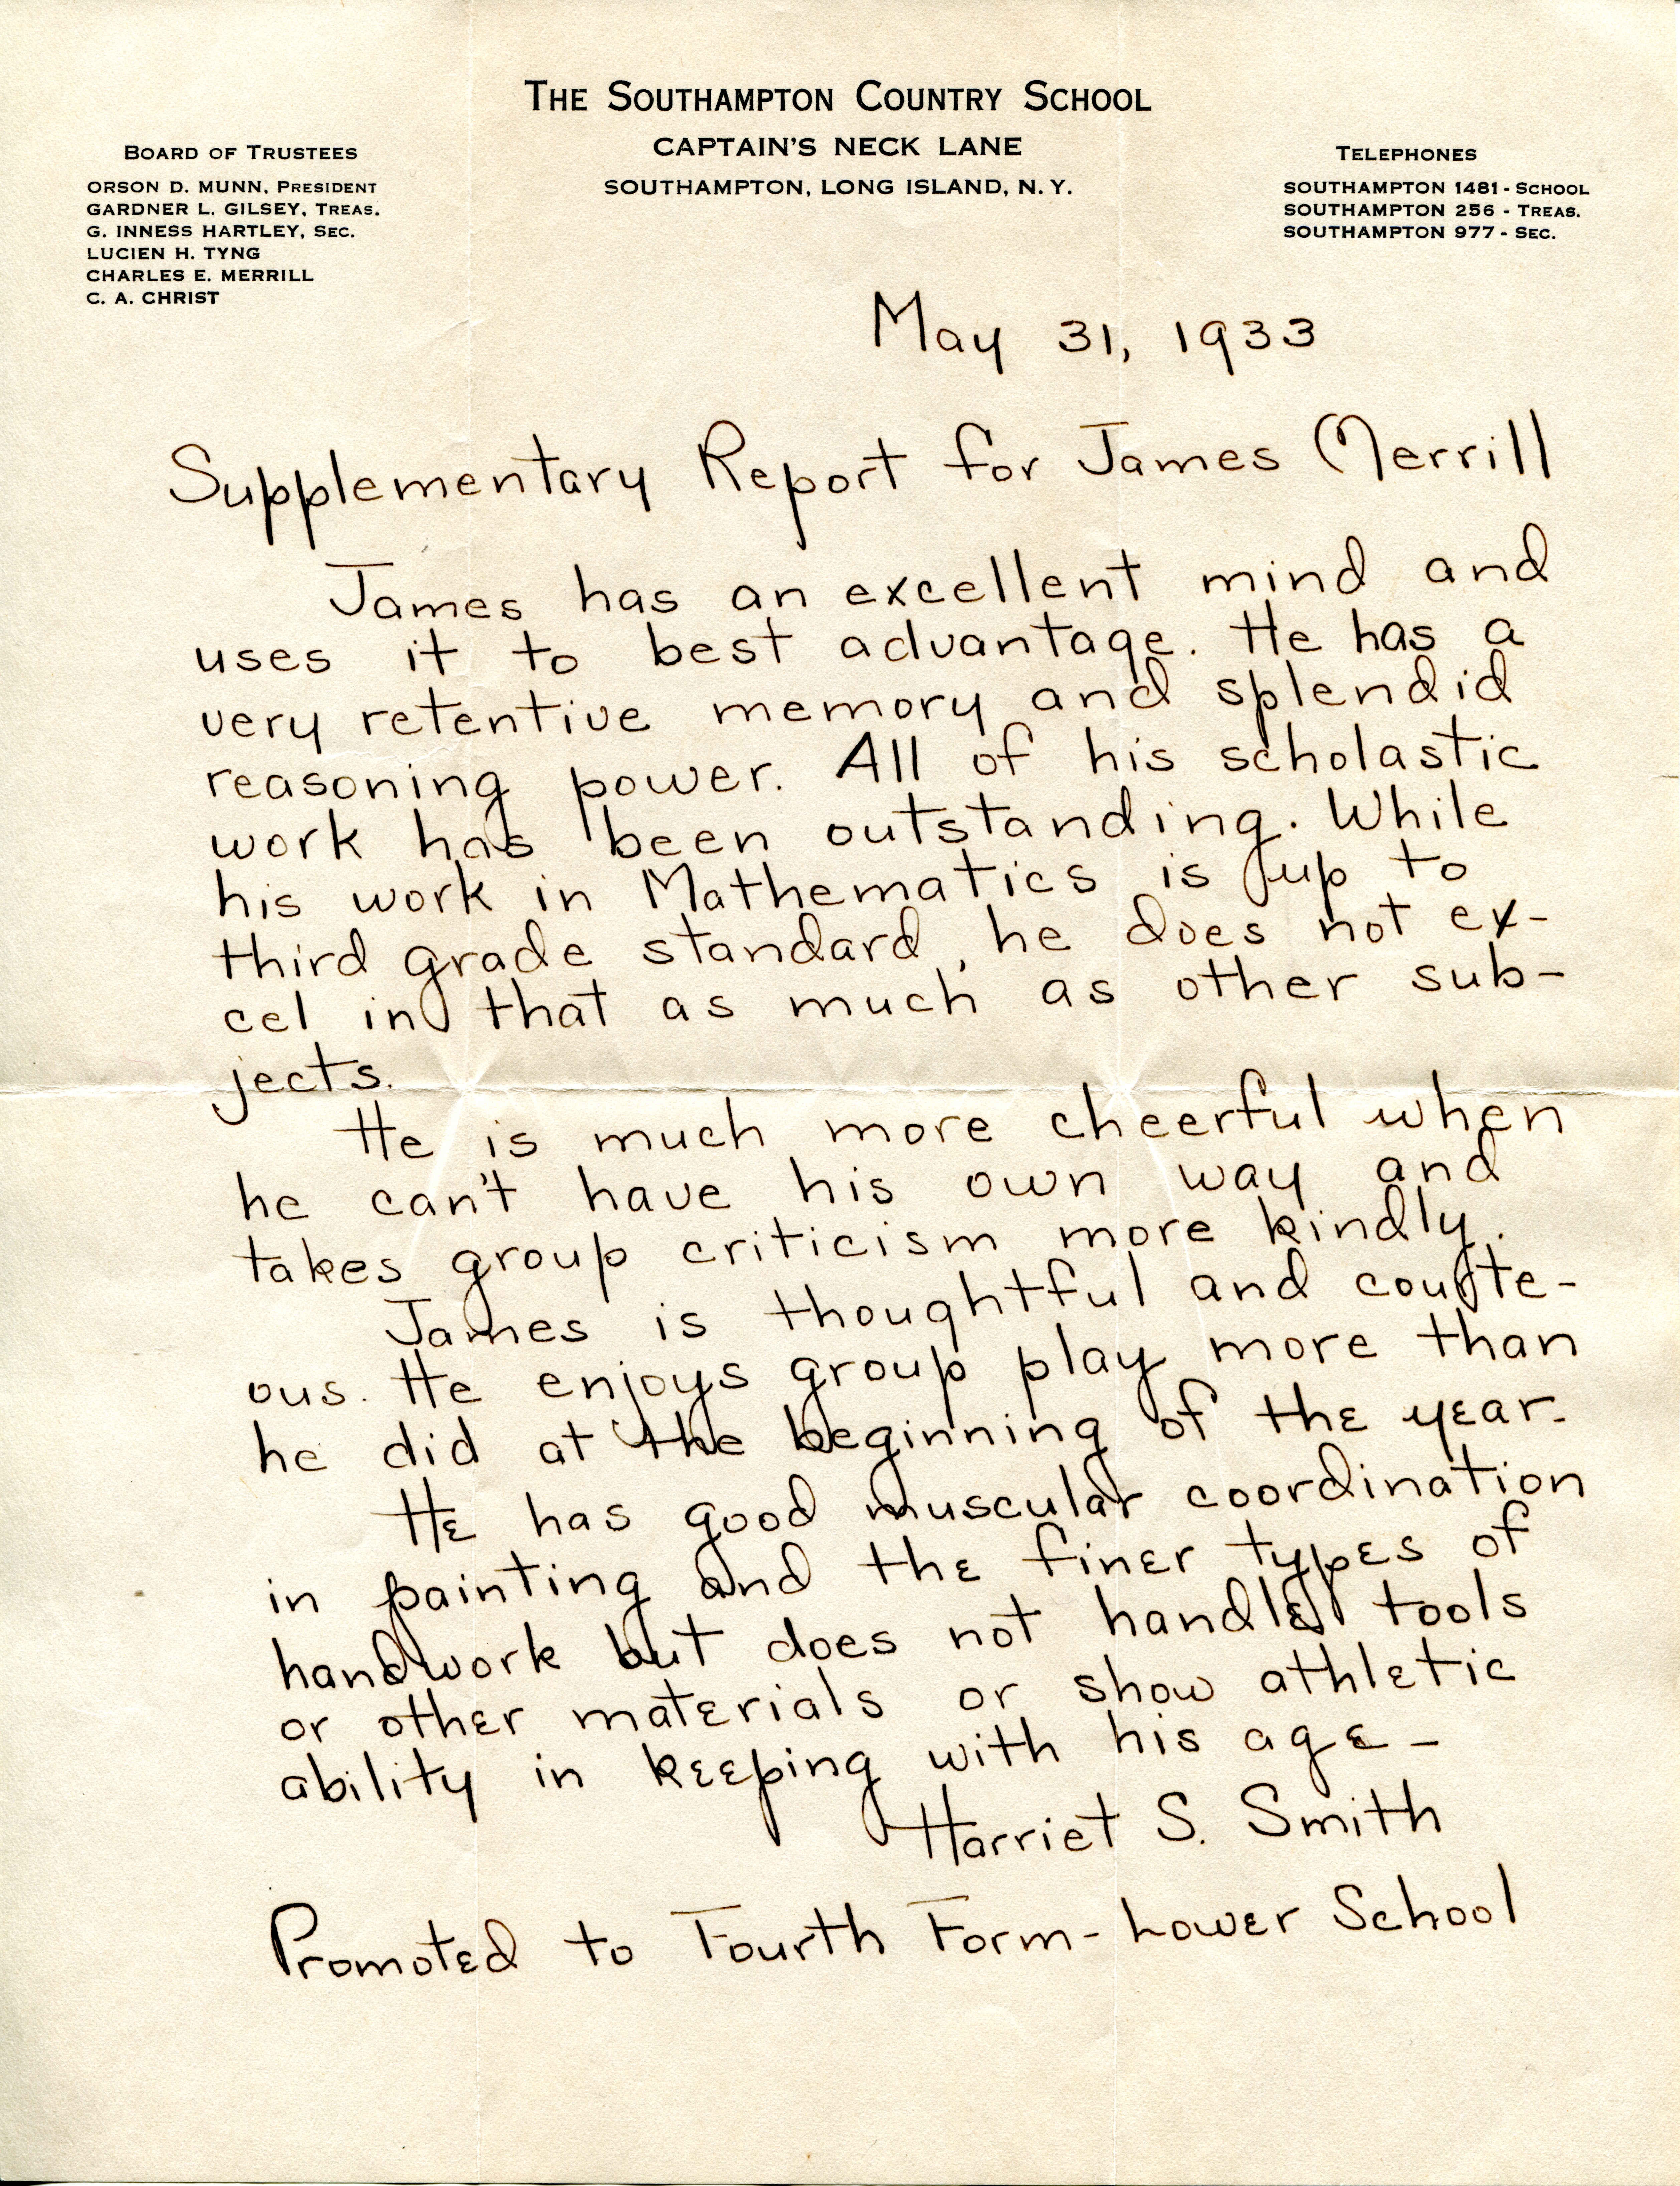 THE SOUTHAMPTON COUNTRY SCHOOL
CAPTAIN'S NECK LANE
SOUTHAMPTON, LONG ISLAND, N. Y.
BOARD OF TRUSTEES
ORSON D. MUNN, PRESIDENT
GARDNER L. GILSEY, TREAS.
G. INNESS HARTLEY, SEC.
LUCIEN H. TYNG
CHARLES E. MERRILL
C. A. CHRIST
TELEPHONES
SOUTHAMPTON 1481 - SCHOOL
SOUTHAMPTON 256 - TREAS.
SOUTHAMPTON 977 - SEC.
May 31, 1933
Supplementary Report for James Merrill
James has an excellent mind and
uses it to best advantage. He has a
very retentive memory and splendid
reasoning power. All of his scholastic
work has been outstanding. While
his work in Mathematics is up to
third grade standard, he does not ex-
cel in that as much as other sub-
jects.
He is much more cheerful when
he can't have his own way and
takes group criticism more kindly.
James is thoughtful and courte-
ous. He enjoys group play more than
he did at the beginning of the year.
He has good muscular coordination
in painting and the finer types of
handwork but does not handle tools
or other materials or show athletic
ability in keeping with his age -
Harriet S. Smith
Promoted to Fourth Form - Lower School